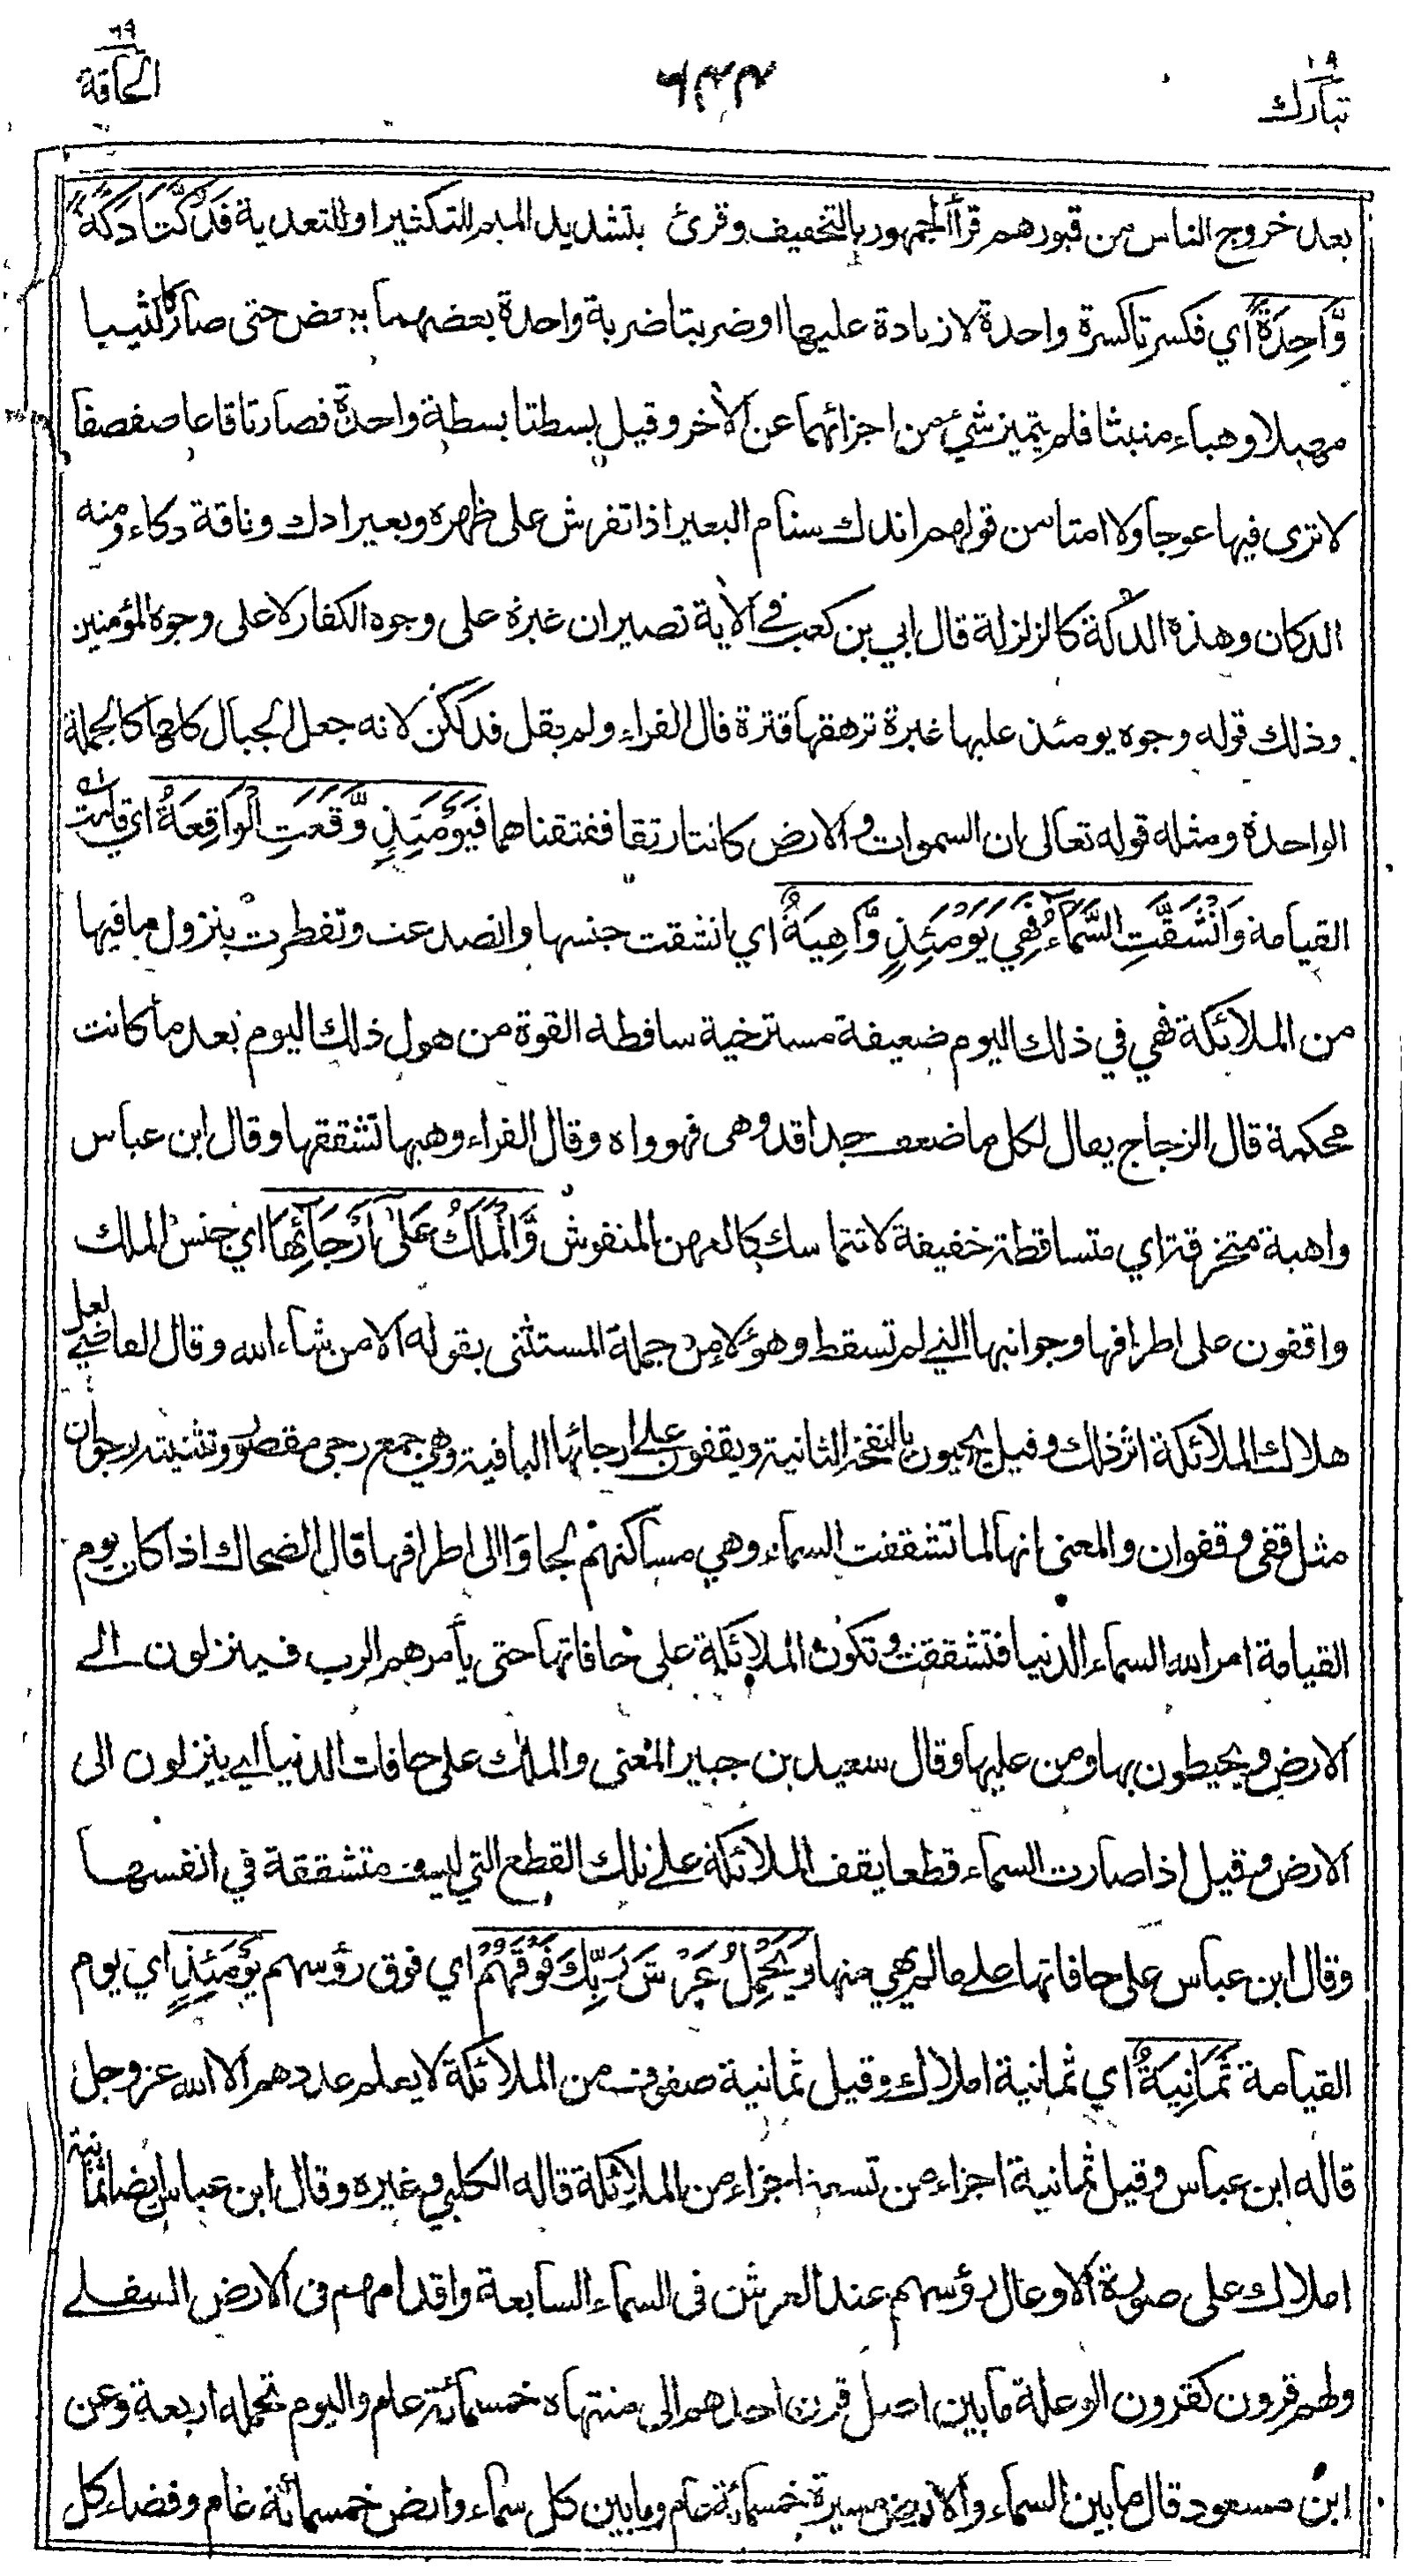 تبارك ٢٩
٦٩ الحاقة
بعد خروج الناس من قبورهم قرأ الجمهور بالتخفيف وقرئ بتشديد الميم للتكثير او للتعدية فَدُكَّتَا دَكَّةً
وَّاحِدَةً اي فكسرتا كسرة واحدة لا زيادة عليها او ضربتا ضربة واحدة بعضهما ببعض حتى صارتا كثيبا
مهيلا وهباء منبثا فلم يتميز شيء من اجزائهما عن الاخر وقيل بسطتا بسطة واحدة فصارتا قاعا صفصفا
لا ترى فيها عوجا ولا امتا من قولهم اندك سنام البعير اذا تفرش على ظهره وبعير ادك وناقة دكاء ومنه
الدكان وهذه الدكة كالزلزلة قال ابي بن كعب في الاية تصيران غبرة على وجوه الكفار لا على وجوه المؤمنين
وذلك قوله وجوه يومئذ عليها غبرة ترهقها قترة قال الفراء ولم يقل فدككن لانه جعل الجبال كلها كالجملة
الواحدة ومثله قوله تعالى ان السموات والارض كانتا رتقا ففتقناهما فَيَوْمَئِذٍ وَّقَعَتِ الْوَاقِعَةُ اي قامت
القيامة وَانْشَقَّتِ السَّمَآءُ فَهِيَ يَوْمَئِذٍ وَّاهِيَةٌ اي انشقت جنسها وانصدعت وتفطرت بنزول ما فيها
من الملائكة فهي في ذلك اليوم ضعيفة مسترخية ساقطة القوة من هول ذلك اليوم بعد ما كانت
محكمة قال الزجاج يقال لكل ما ضعف جدا قد وهى فهو واه وقال الفراء وهيها تشققها وقال ابن عباس
واهية متخرقة اي متساقطة خفيفة لا تتماسك كالعهن المنفوش وَّالْمَلَكُ عَلَىٰ اَرْجَآئِهَا اي جنس الملك
واقفون على اطرافها وجوانبها التي لم تسقط وهؤلاء من جملة المستثنى بقوله الا من شاء الله وقال القاضي لعل
هلاك الملائكة اثر ذلك وقيل يحيون بالنفخة الثانية ويقفون على ارجائها الباقية وهي جمع رجى مقصور وتثنيته رجوان
مثل قفى وقفوان والمعنى انها لما تشققت السماء وهي مساكنهم لجاوا الى اطرافها قال الضحاك اذا كان يوم
القيامة امر الله السماء الدنيا فتشققت وتكون الملائكة على حافاتها حتى يأمرهم الرب فينزلون الى
الارض ويحيطون بها ومن عليها وقال سعيد بن جبير المعنى والملك على حافات الدنيا اي ينزلون الى
الارض وقيل اذا صارت السماء قطعا يقف الملائكة على تلك القطع التي ليست متشققة في انفسها
وقال ابن عباس على حافاتها على ما لم يهي منها وَيَحْمِلُ عَرْشَ رَبِّكَ فَوْقَهُمْ اي فوق رؤسهم يَوْمَئِذٍ اي يوم
القيامة ثَمَانِيَةٌ اي ثمانية املاك وقيل ثمانية صفوف من الملائكة لا يعلم عددهم الا الله عز وجل
قاله ابن عباس وقيل ثمانية اجزاء من تسعة اجزاء من الملائكة قاله الكلبي وغيره وقال ابن عباس ايضا ثمانية
املاك على صورة الاوعال رؤسهم عند العرش في السماء السابعة واقدامهم في الارض السفلى
ولهم قرون كقرون الوعلة ما بين اصل قرن احدهم الى منتهاه خمسمائة عام واليوم تحمله اربعة وعن
ابن مسعود قال ما بين السماء والارض مسيرة خمسمائة عام وما بين كل سماء وارض خمسمائة عام وفضاء كل